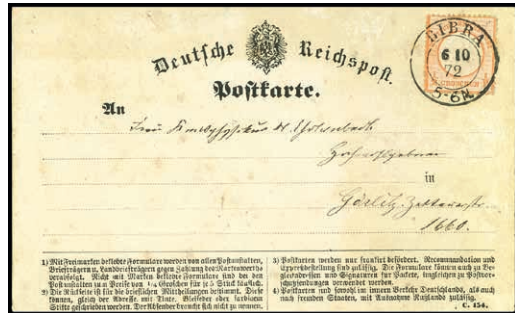 Deutsche Reichspost.
Postkarte.
GIBRA
6 10
72
5-6N.
An
in
Görlitz
1) Mit Freimarken beklebte Formulare werden von allen Postanstalten,
Briefträgern u. Landbriefträgern gegen Zahlung des Kartenwerths
verabfolgt. Nicht mit Marken beklebte Formulare sind bei den
Postanstalten zum Preise von 1/4 Groschen für je 5 Stück käuflich.
2) Die Rückseite ist für die brieflichen Mittheilungen bestimmt. Diese
können, gleich der Adresse mit Tinte, Bleifeder oder farbigem
Stifte geschrieben werden. Der Absender braucht sich nicht zu nennen.
3) Postkarten werden nur frankirt befördert. Recommandation und
Expreßbestellung sind zulässig. Die Formulare können auch zu Be-
gleitadressen und Signaturen für Packete, ingleichen zu Postvor-
schußsendungen verwendet werden.
4) Postkarten sind sowohl im innern Verkehr Deutschlands, als auch
nach fremden Staaten, mit Ausnahme Rußlands zulässig.
C. 154.